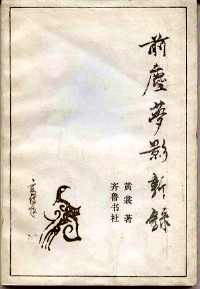 前塵夢影新錄
黄裳 著
齐鲁书社